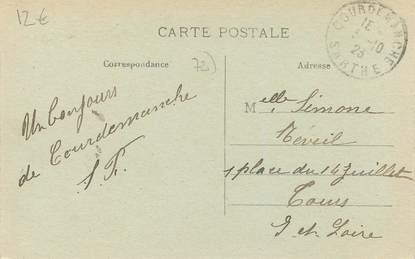 12€
CARTE POSTALE
Correspondance
72
Adresse
COURDEMANCHE
SARTHE
Un bonjour
de Courdemanche
S.F.
Melle Simone
Réveil
1 place du 14 Juillet
Tours
I et Loire